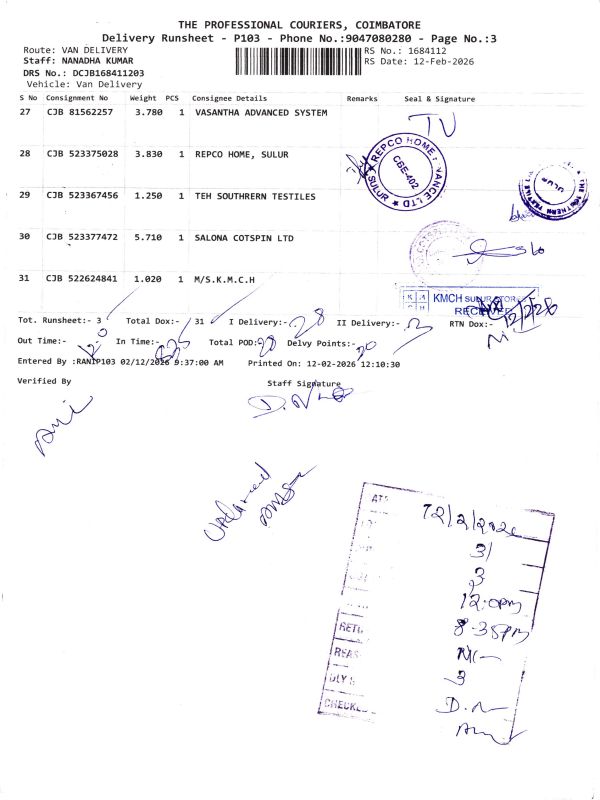 THE PROFESSIONAL COURIERS, COIMBATORE
Delivery Runsheet - P103 - Phone No.:9047080280 - Page No.:3
Route: VAN DELIVERY RS No.: 1684112
Staff: NANADHA KUMAR RS Date: 12-Feb-2026
DRS No.: DCJB168411203
Vehicle: Van Delivery
S No Consignment No Weight PCS Consignee Details Remarks Seal & Signature
27 CJB 81562257 3.780 1 VASANTHA ADVANCED SYSTEM
28 CJB 523375028 3.830 1 REPCO HOME, SULUR
REPCO HOME FINANCE LTD
CBE-402
SULUR
29 CJB 523367456 1.250 1 TEH SOUTHRERN TESTILES
30 CJB 523377472 5.710 1 SALONA COTSPIN LTD
31 CJB 522624841 1.020 1 M/S.K.M.C.H
KMCH SULUR STORE
RECEIVED
12/2/26
Tot. Runsheet:- 3 Total Dox:- 31 I Delivery:- 28 II Delivery:- 3 RTN Dox:-
Out Time:- In Time:- Total POD: 28 Delvy Points:- 20
Entered By :RANIP103 02/12/2026 9:37:00 AM Printed On: 12-02-2026 12:10:30
Verified By Staff Signature
12/2/2026
31
3
12.0pm
RETU 8.35pm
REAS
DLY 3
CHECKE